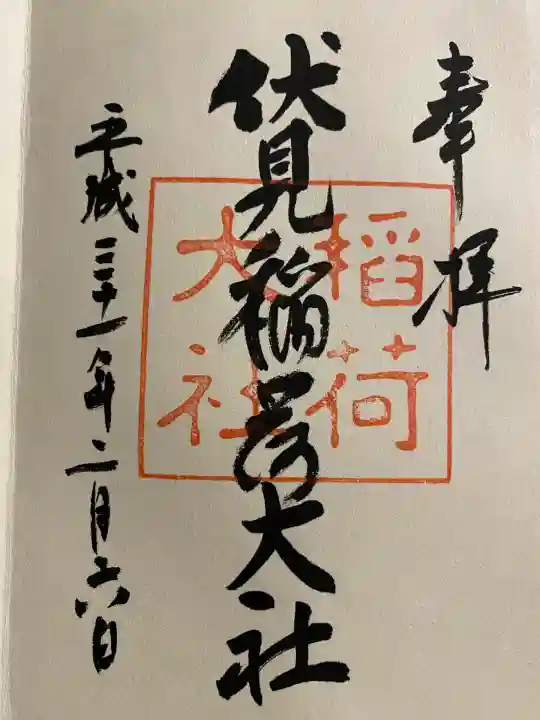 奉拝
伏見稲荷大社
稲荷
大社
平成三十一年二月六日